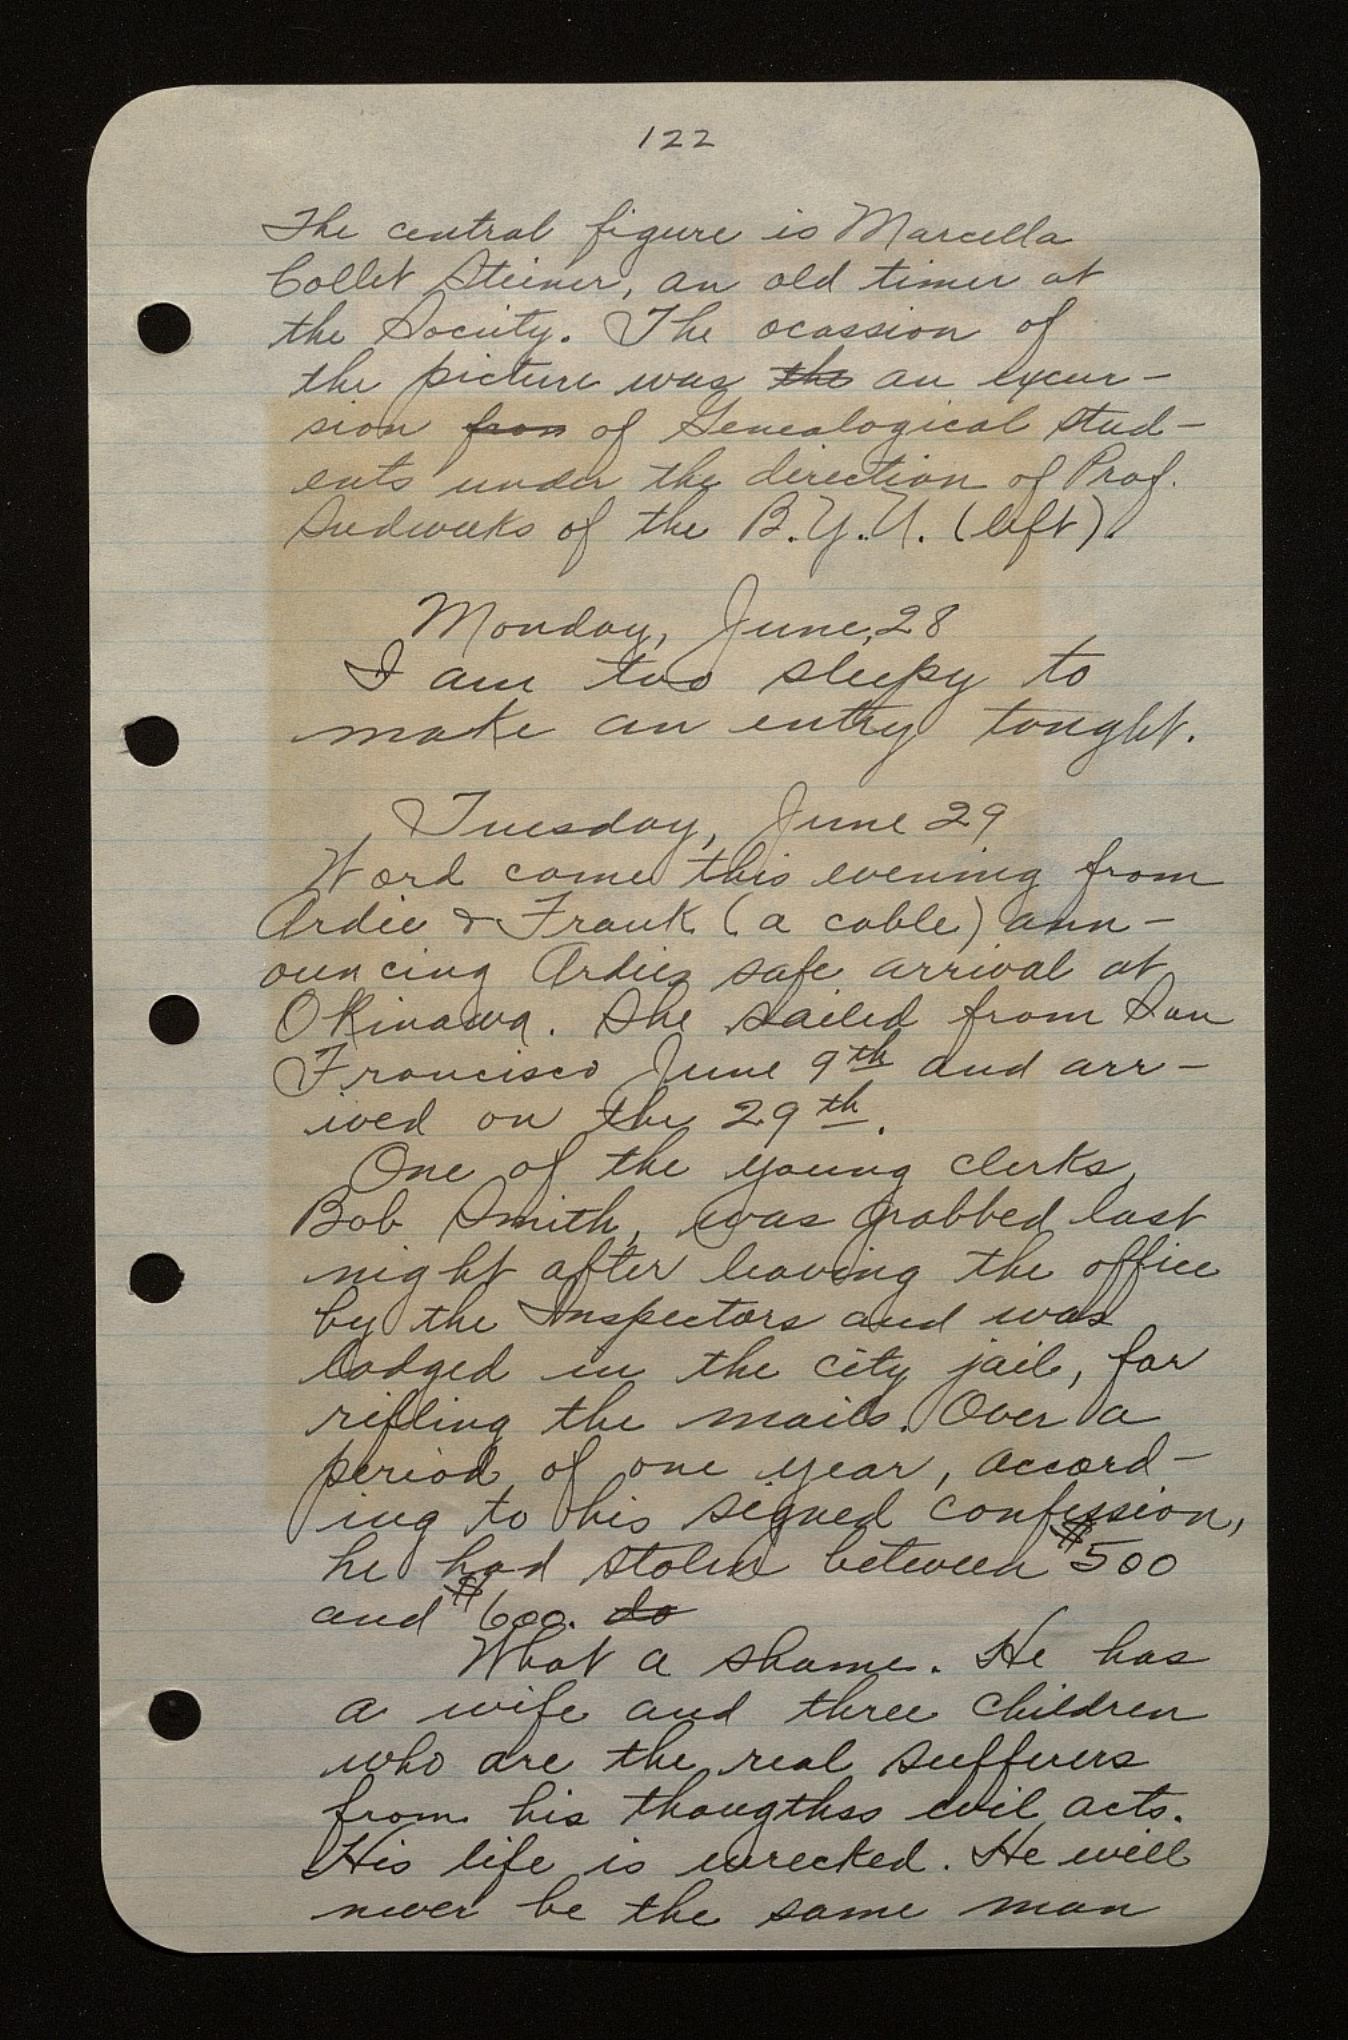 122
The central figure is Marcella
Collet Steiner, an old timer at
the Society. The ocassion of
the picture was the an excur-
sion from of Genealogical stud-
ents under the direction of Prof.
Sudweeks of the B.Y.U. (left).
Monday, June, 28
I am too sleepy to
make an entry tonght.
Tuesday, June 29
Word came this evening from
Ardie & Frank (a cable) ann-
ouncing Ardies safe arrival at
Okinawa. She sailed from San
Francisco June 9th and arr-
ived on the 29th.
One of the young clerks,
Bob Smith, was grabbed last
night after leaving the office
by the Inspectors and was
lodged in the city jail, for
rifling the mails. Over a
period of one year, accord-
ing to his signed confession,
he had stolen between $500
and $600. do
What a shame. He has
a wife and three children
who are the real sufferers
from his thougthss evil acts.
His life is wrecked. He will
never be the same man